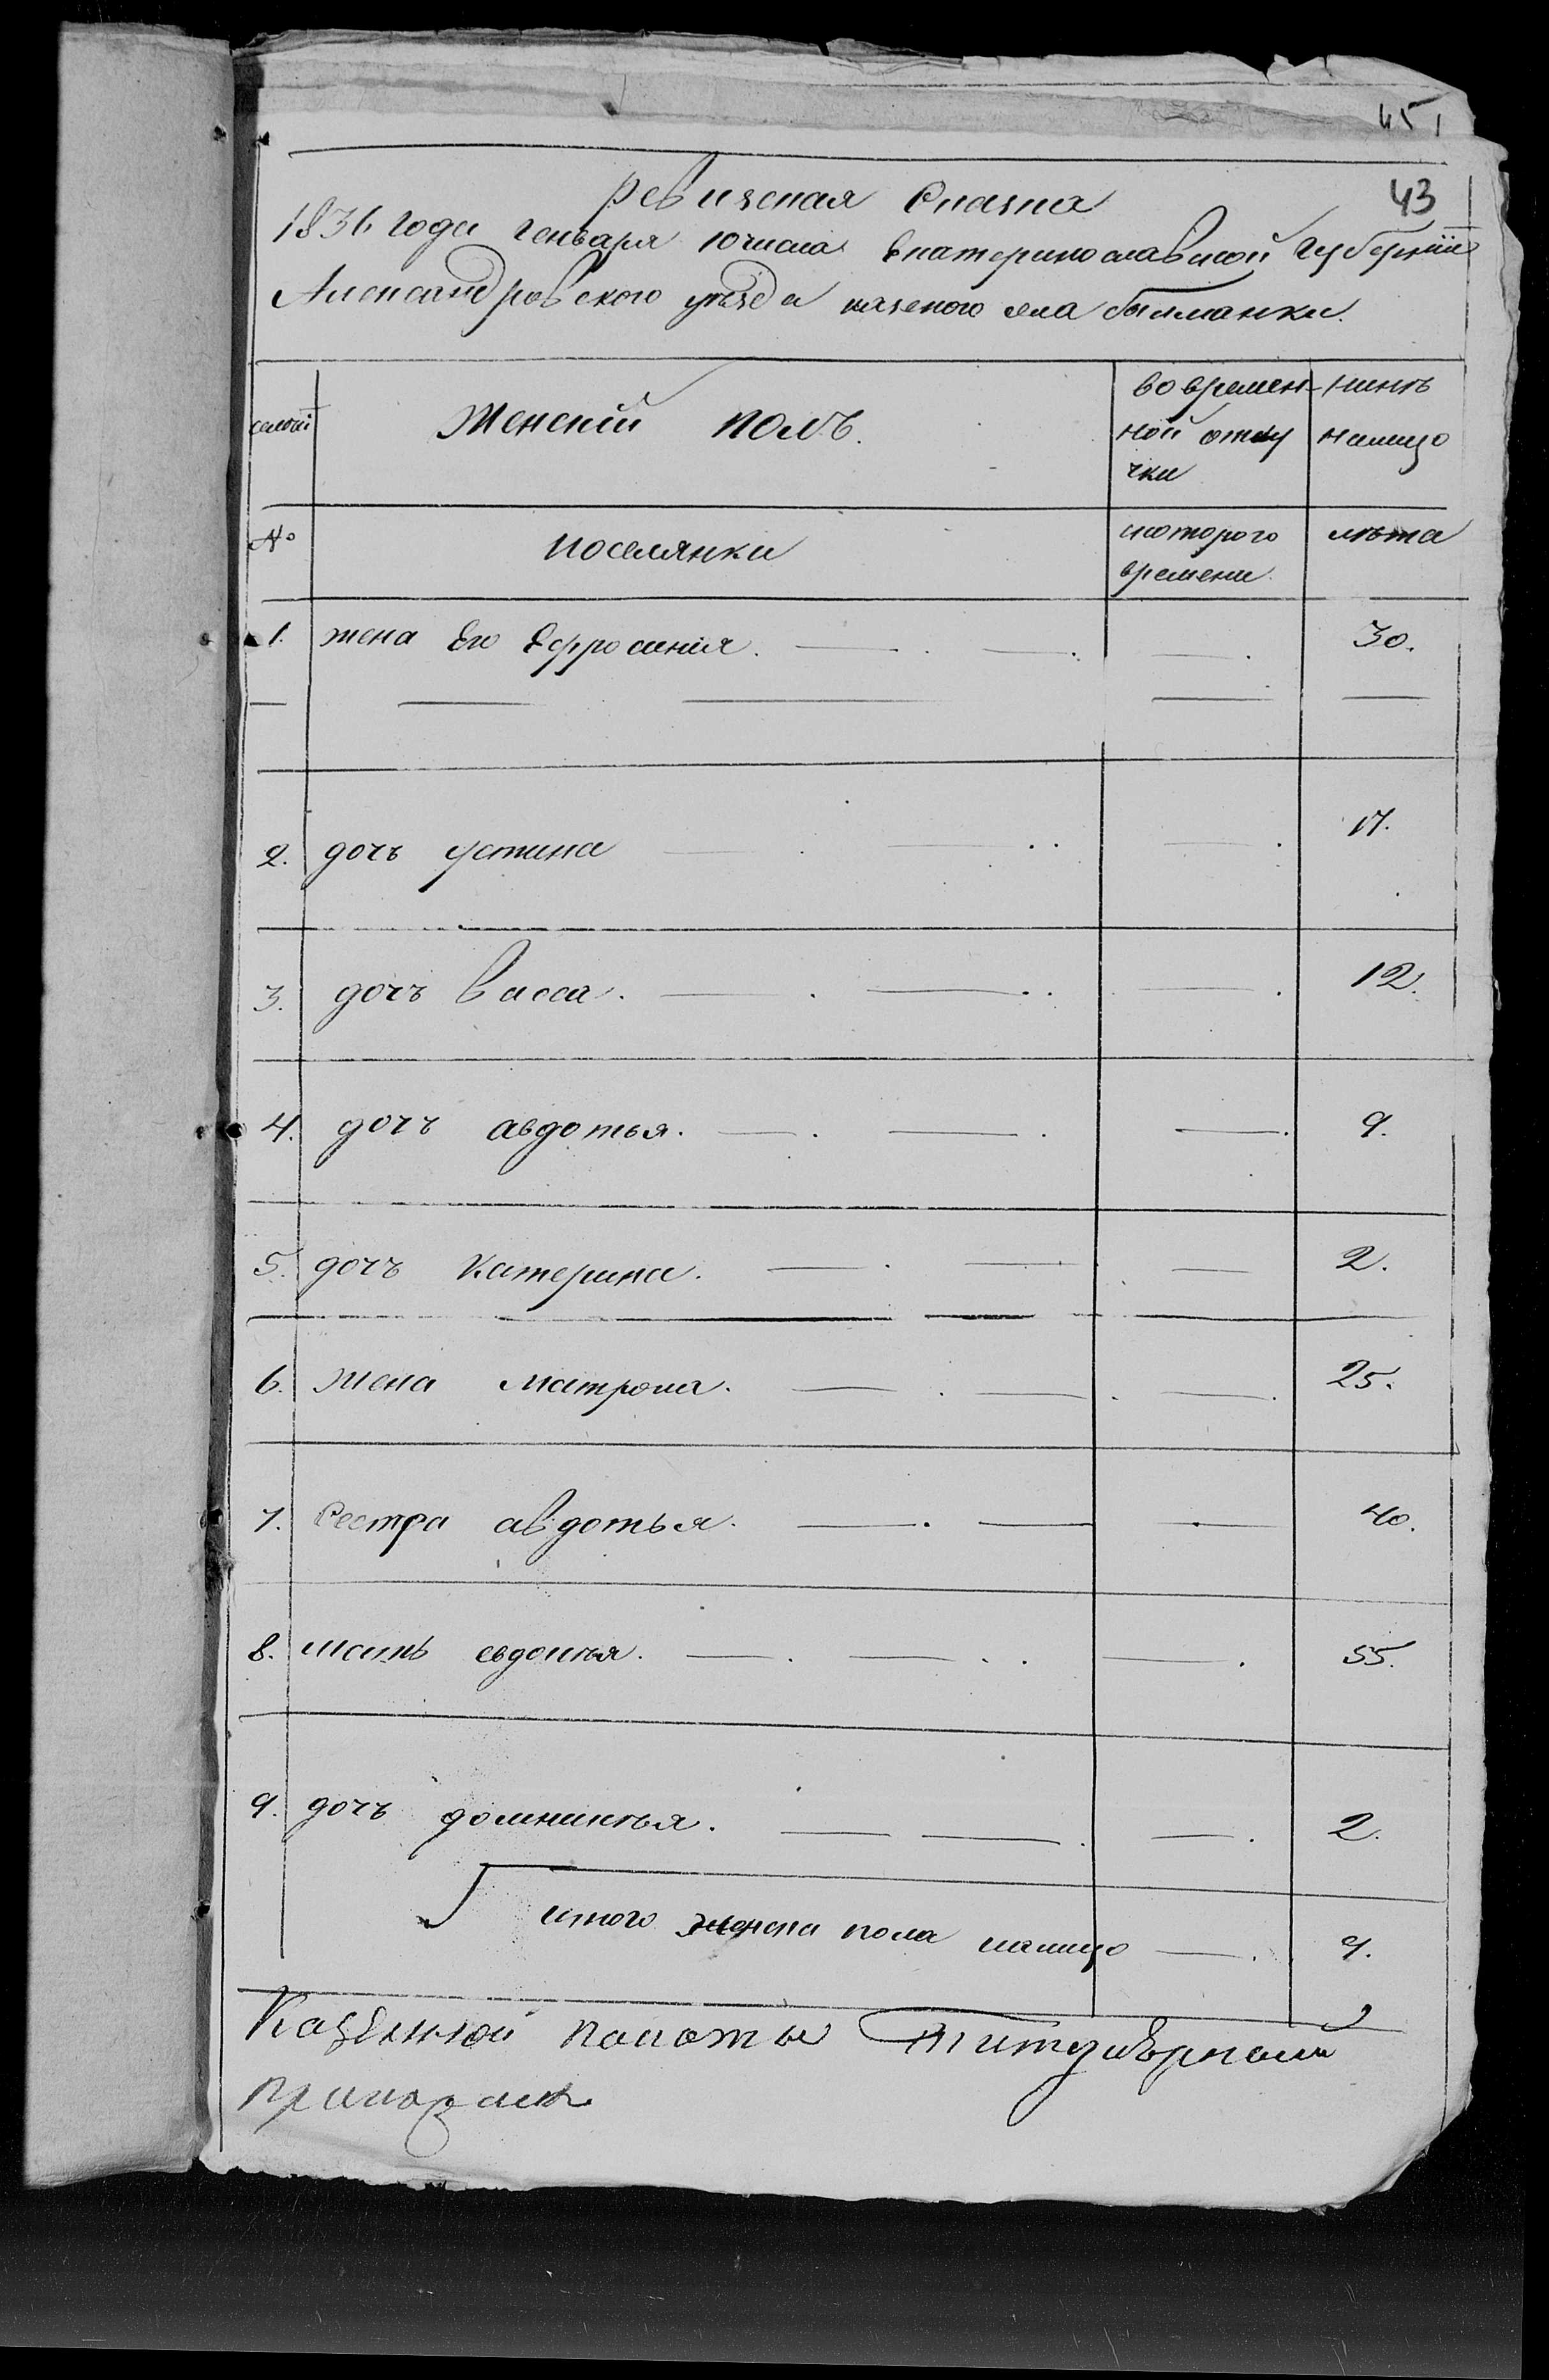 451
43
Ревизская Сказка
1836 года генваря 10 числа Екатеринославской губерніи
Александровского уезда казеного села Белманки.
семьи Женский полъ. во времен- нинѣ
ной отлу налицо
чки
№ поселянки искоторого лѣта
времени
1. жена Его Ефросинія. 30.
2. дочъ устина 17.
3. дочъ васса. 12.
4. дочъ авдотья. 9.
5. дочъ катерина. 2.
6. жена матрона. 25.
7. Сестра авдотья. 40.
8. мать евдокия. 55.
9. дочъ домникия. 2.
итого женска пола налицо 9.
Казенной палаты Титулярный